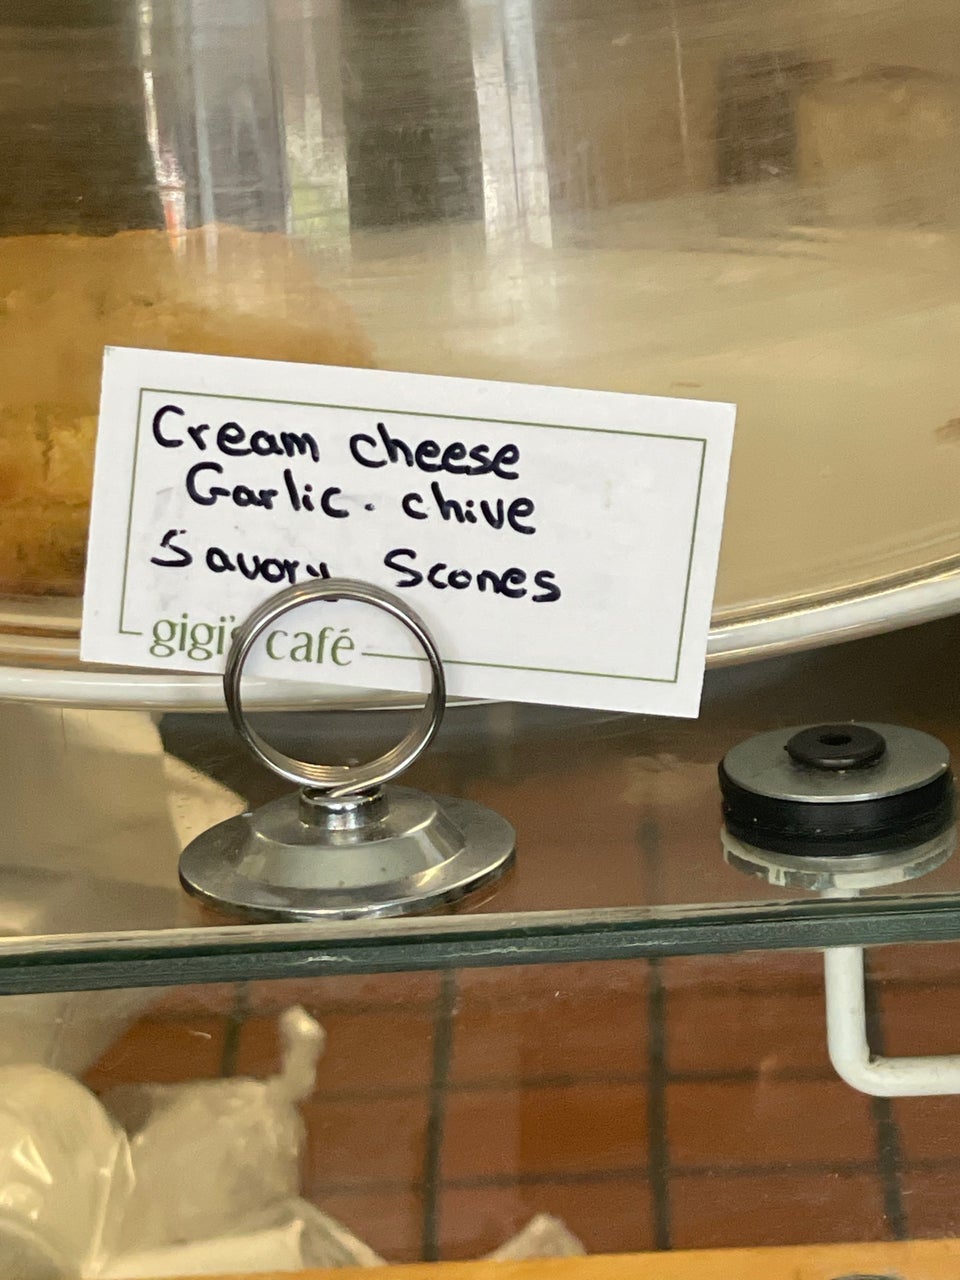 Cream cheese
Garlic. chive
Savory Scones
gigi's café